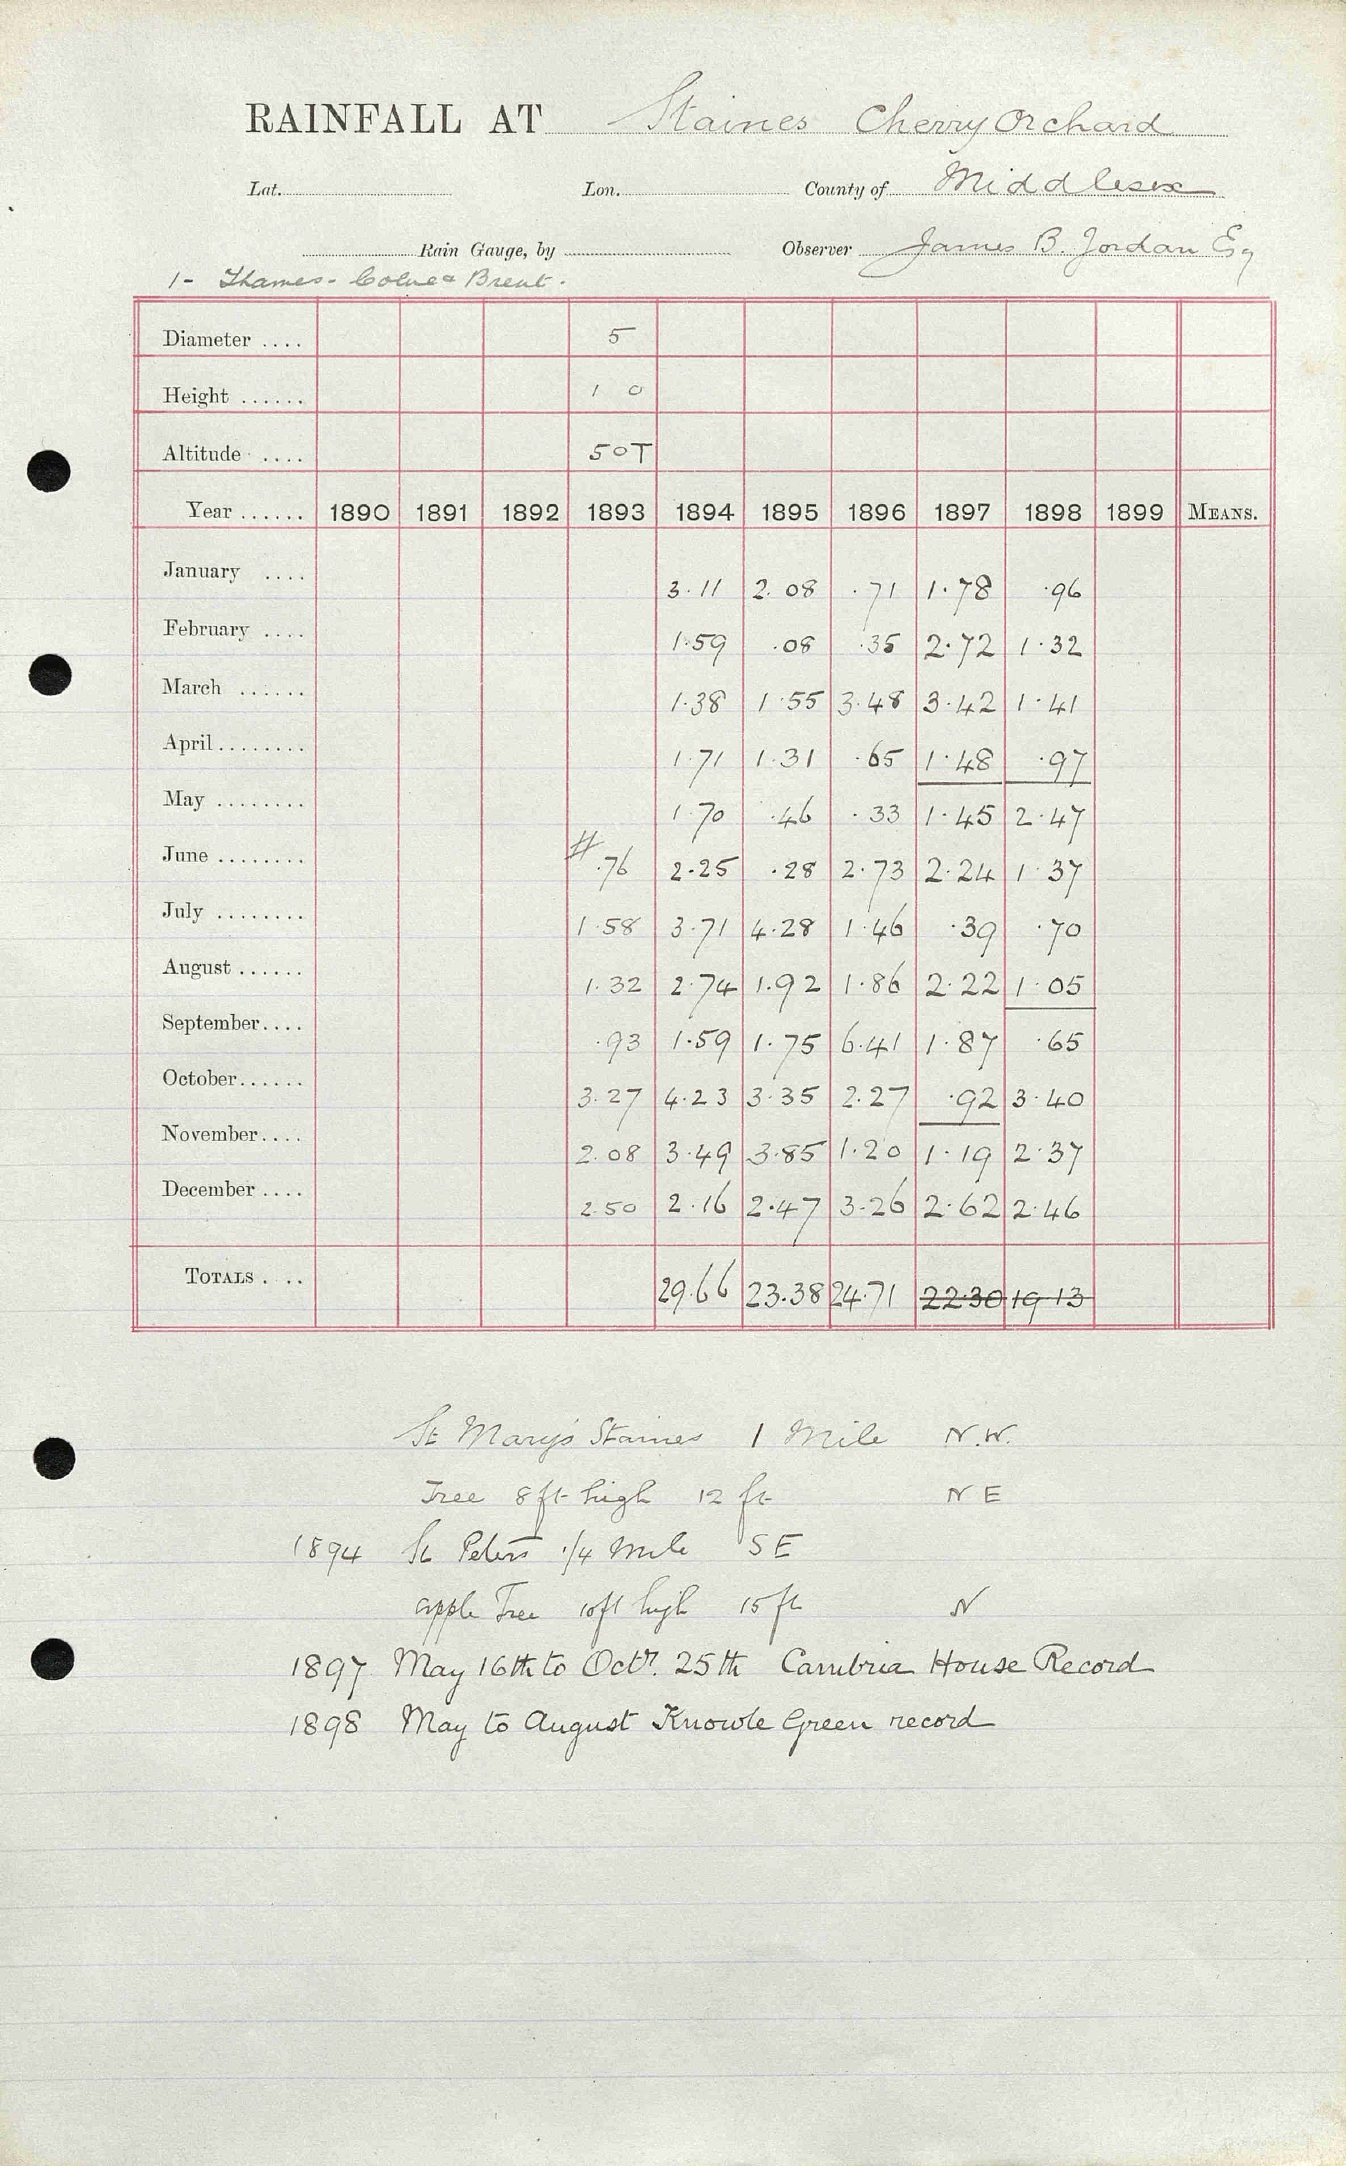 RAINFALL AT Staines Cherry Orchard
Lat. Lon. County of Middlesex
Rain Gauge, by Observer James B. Jordan Esq
1- Thames - Colne & Brent.
Diameter .... 5
Height ...... 1 0
Altitude .... 50T
Year ...... 1890 1891 1892 1893 1894 1895 1896 1897 1898 1899 MEANS.
January .... 3.11 2.08 .71 1.78 .96
February .... 1.59 .08 .35 2.72 1.32
March ...... 1.38 1.55 3.48 3.42 1.41
April ........ 1.71 1.31 .65 1.48 .97
May ........ 1.70 .46 .33 1.45 2.47
June ........ # .76 2.25 .28 2.73 2.24 1.37
July ........ 1.58 3.71 4.28 1.46 .39 .70
August ...... 1.32 2.74 1.92 1.86 2.22 1.05
September .... .93 1.59 1.75 6.41 1.87 .65
October ...... 3.27 4.23 3.35 2.27 .92 3.40
November .... 2.08 3.49 3.85 1.20 1.19 2.37
December .... 2.50 2.16 2.47 3.26 2.62 2.46
TOTALS .... 29.66 23.38 24.71 22.30 19.13
St Mary's Staines 1 Mile N.W.
Tree 8ft high 12 ft N E
1894 St Peters 1/4 Mile S E
apple Tree 10ft high 15 ft N
1897 May 16th to Octr. 25th Cambria House Record
1898 May to August Knowle Green record